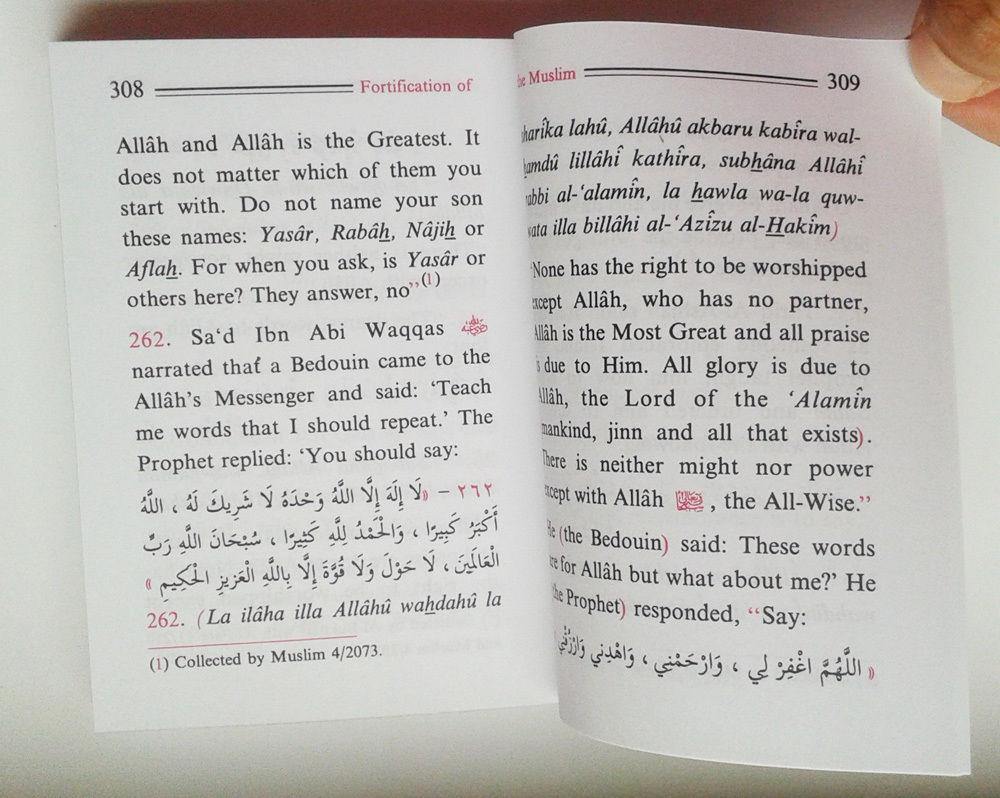 308 Fortification of
Allâh and Allâh is the Greatest. It
does not matter which of them you
start with. Do not name your son
these names: Yasâr, Rabâh, Nâjih or
Aflah. For when you ask, is Yasâr or
others here? They answer, no”(1)
262. Sa‘d Ibn Abi Waqqas
narrated that a Bedouin came to the
Allâh’s Messenger and said: ‘Teach
me words that I should repeat.’ The
Prophet replied: ‘You should say:
٢٦٢ – «لَا إِلَهَ إِلَّا اللَّهُ وَحْدَهُ لَا شَرِيكَ لَهُ ، اللَّهُ
أَكْبَرُ كَبِيرًا ، وَالْحَمْدُ لِلَّهِ كَثِيرًا ، سُبْحَانَ اللَّهِ رَبِّ
الْعَالَمِينَ ، لَا حَوْلَ وَلَا قُوَّةَ إِلَّا بِاللَّهِ الْعَزِيزِ الْحَكِيمِ»
262. (La ilâha illa Allâhû wahdahû la
(1) Collected by Muslim 4/2073.
he Muslim 309
harîka lahû, Allâhû akbaru kabîra wal-
hamdû lillâhî kathîra, subhâna Allâhî
abbi al-‘alamîn, la hawla wa-la quw-
ata illa billâhi al-‘Azîzu al-Hakîm)
‘None has the right to be worshipped
xcept Allâh, who has no partner,
Allâh is the Most Great and all praise
s due to Him. All glory is due to
Allâh, the Lord of the ‘Alamîn
mankind, jinn and all that exists).
There is neither might nor power
xcept with Allâh , the All-Wise.”
He (the Bedouin) said: These words
re for Allâh but what about me?’ He
the Prophet) responded, “Say:
«اللَّهُمَّ اغْفِرْ لِي ، وَارْحَمْنِي ، وَاهْدِنِي وَارْزُقْنِي